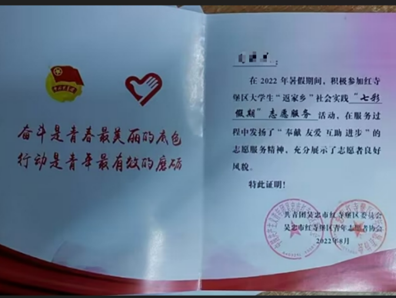 奋斗是青春最美丽的底色
行动是青年最有效的磨砺
在 2022 年暑假期间，积极参加红寺
堡区大学生“返家乡”社会实践“七彩
假期”志愿服务 活动，在服务过
程中发扬了“奉献 友爱 互助 进步”的
志愿服务精神，充分展示了志愿者良好
风貌。
特此证明！
共青团吴忠市红寺堡区委员会
吴忠市红寺堡区青年志愿者协会
2022年8月